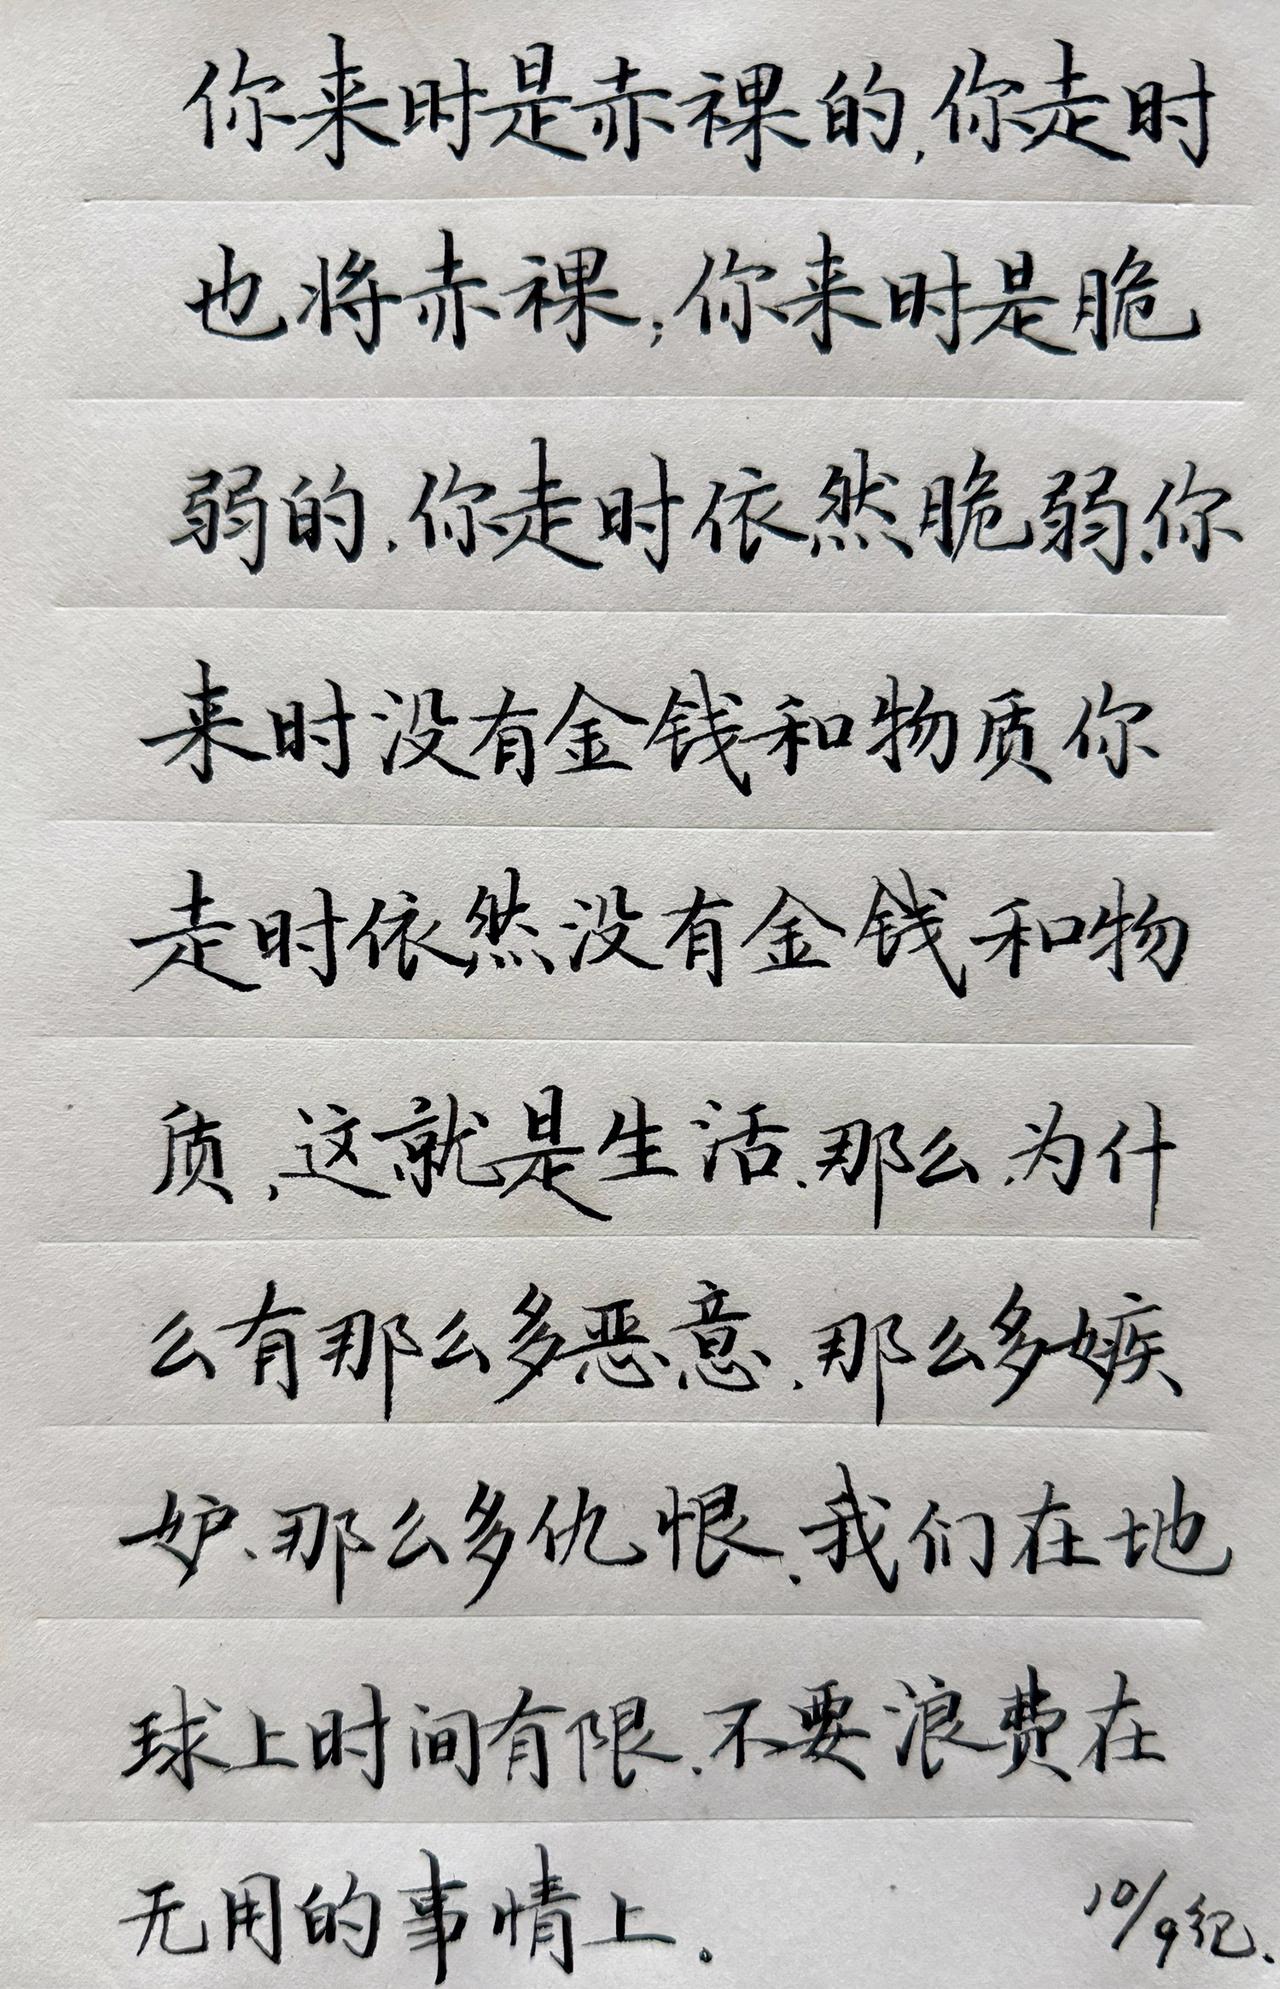 你来时是赤裸的,你走时
也将赤裸;你来时是脆
弱的,你走时依然脆弱,你
来时没有金钱和物质你
走时依然没有金钱和物
质,这就是生活,那么,为什
么有那么多恶意,那么多嫉
妒、那么多仇恨,我们在地
球上时间有限,不要浪费在
无用的事情上。
10/9纪.